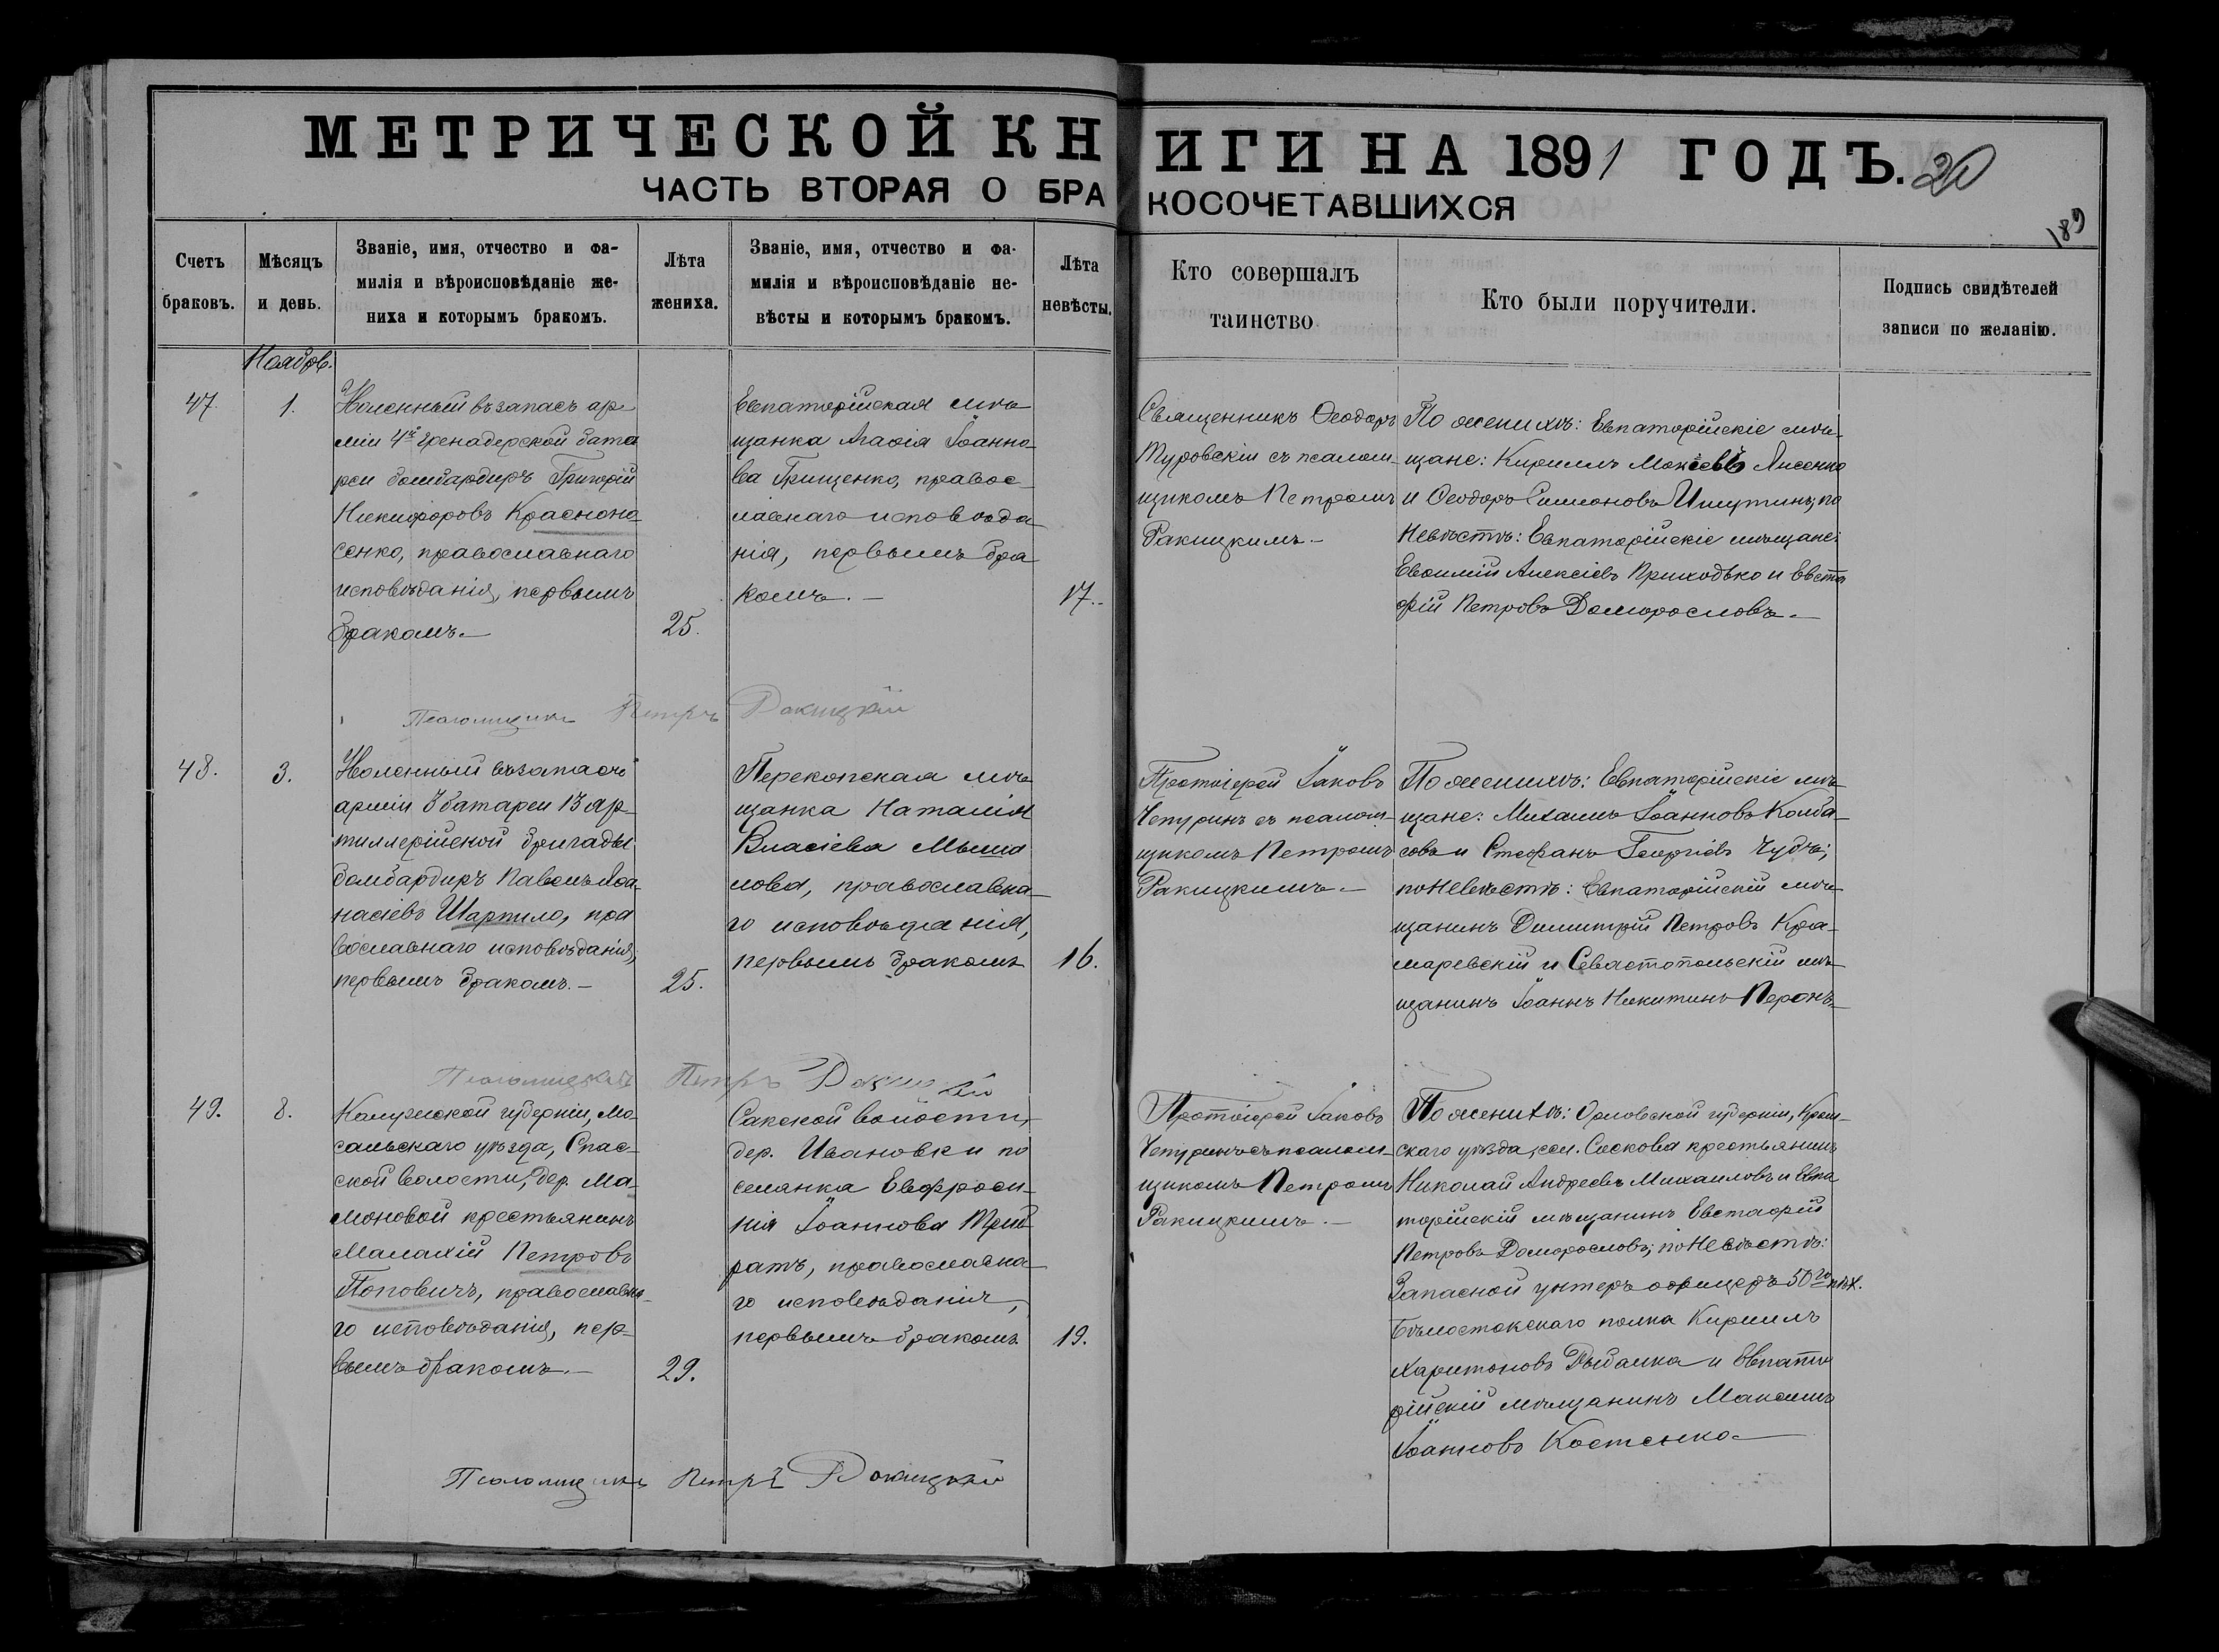 МЕТРИЧЕСКОЙ КНИГИ НА 1891 ГОДЪ. 20
ЧАСТЬ ВТОРАЯ О БРАКОСОЧЕТАВШИХСЯ
189
Счетъ
браковъ.
Мѣсяцъ
и день.
Званіе, имя, отчество и фа-
милія и вѣроисповѣданіе же-
ниха и которымъ бракомъ.
Лѣта
жениха.
Званіе, имя, отчество и фа-
милія и вѣроисповѣданіе не-
вѣсты и которымъ бракомъ.
Лѣта
невѣсты.
Кто совершалъ
таинство
Кто были поручители.
Подпись свидѣтелей
записи по желанію.
Ноябрь.
47.
1.
Уволенный въ запасъ ар-
міи 4й гренадерской бата
реи бомбардиръ Григорій
Никифоровъ Красноно
сенко, православнаго
исповѣданія, первымъ
бракомъ.
25.
Евпаторійская мѣ
щанка Агаѳія Іоанно-
ва Грищенко, правос-
лавнаго исповѣда
нія, первымъ бра
комъ.
17.
Священникъ Ѳеодоръ
Туровскій съ псалом-
щикомъ Петромъ
Ракицкимъ.
По женихѣ: Евпаторійскіе мѣ-
щане: Кириллъ Мокіевъ Лисенко
и Ѳеодоръ Симоновъ Ишутинъ; по
невѣстѣ: Евпаторійскіе мѣщане:
Евѳимій Алексіевъ Приходько и Евста
фій Петровъ Доморословъ.
Псаломщикъ Петръ Ракицкій
48.
3.
Уволенный въ запасъ
арміи 3 батареи 13 ар-
тиллерійской бригады
бомбардиръ Павелъ Аѳа-
насіевъ Шарпило, пра
вославнаго исповѣданія,
первымъ бракомъ.
25.
Перекопская мѣ
щанка Наталія
Власіева Мыша
лова, православна-
го исповѣданія,
первымъ бракомъ
16.
Протоіерей Іаковъ
Чепуринъ съ псалом-
щикомъ Петромъ
Ракицкимъ.
По женихѣ: Евпаторійскіе мѣ-
щане: Михаилъ Іоанновъ Колба-
совъ и Стефанъ Георгіевъ Чудъ;
по невѣстѣ: Евпаторійскій мѣ-
щанинъ Димитрій Петровъ Кра-
маревскій и Севастопольскій мѣ-
щанинъ Іоаннъ Никитинъ Перонъ
Псаломщикъ Петръ Ракицкій
49.
8.
Калужской губерніи, Мо-
сальскаго уѣзда, Спас-
ской волости, дер. Ма-
моновой крестьянинъ
Малахій Петровъ
Поповичъ, православна-
го исповѣданія, пер-
вымъ бракомъ.
29.
Сакской волости,
дер. Ивановки по
селянка Евфроси-
нія Іоаннова
ратъ, православна-
го исповѣданія,
первымъ бракомъ
19.
Протоіерей Іаковъ
Чепуринъ съ псалом-
щикомъ Петромъ
Ракицкимъ.
По женихѣ: Орловской губерніи, Кром-
скаго уѣзда, сел. Соскова крестьянинъ
Николай Андреевъ Михаиловъ и Евпа
торійскій мѣщанинъ Евстафій
Петровъ Доморословъ; по невѣстѣ:
Запасной унтеръ офицеръ 50го пѣх.
Бѣлостокскаго полка Кириллъ
Харитоновъ Рыбалка и Евпато
рійскій мѣщанинъ Максимъ
Іоанновъ Костенко
Псаломщикъ Петръ Ракицкій